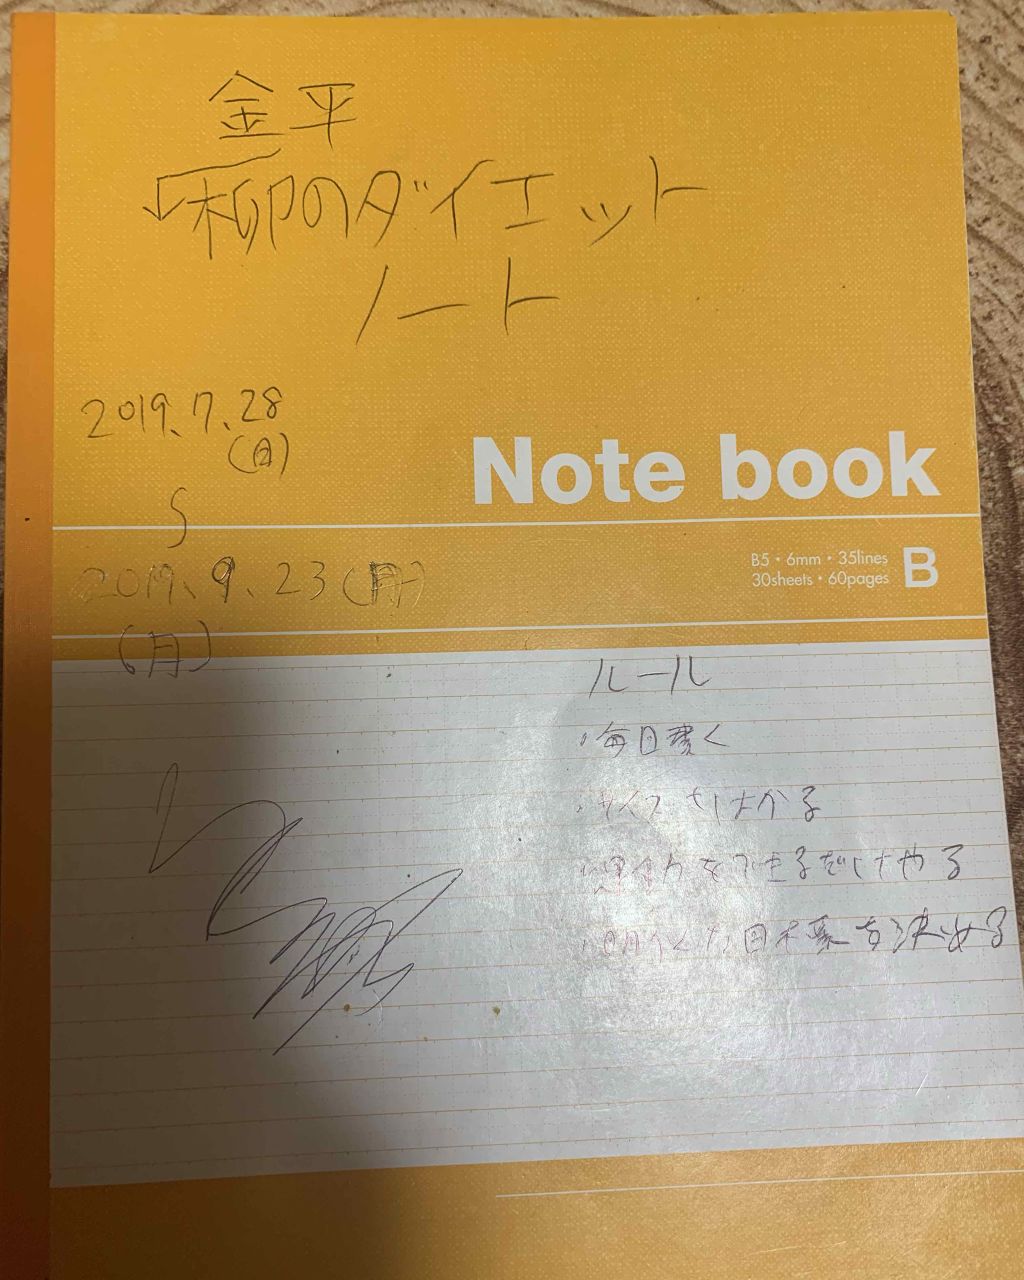 金平
√柳のダイエット
ノート
2019.7.28
(日)
S
2019.9.23(月)
(月)
Note book
B5・6mm・35lines
30sheets・60pages
B
ルール
・毎日書く
・サイズもはかる
・運動をできるだけやる
・明確な目標を決める